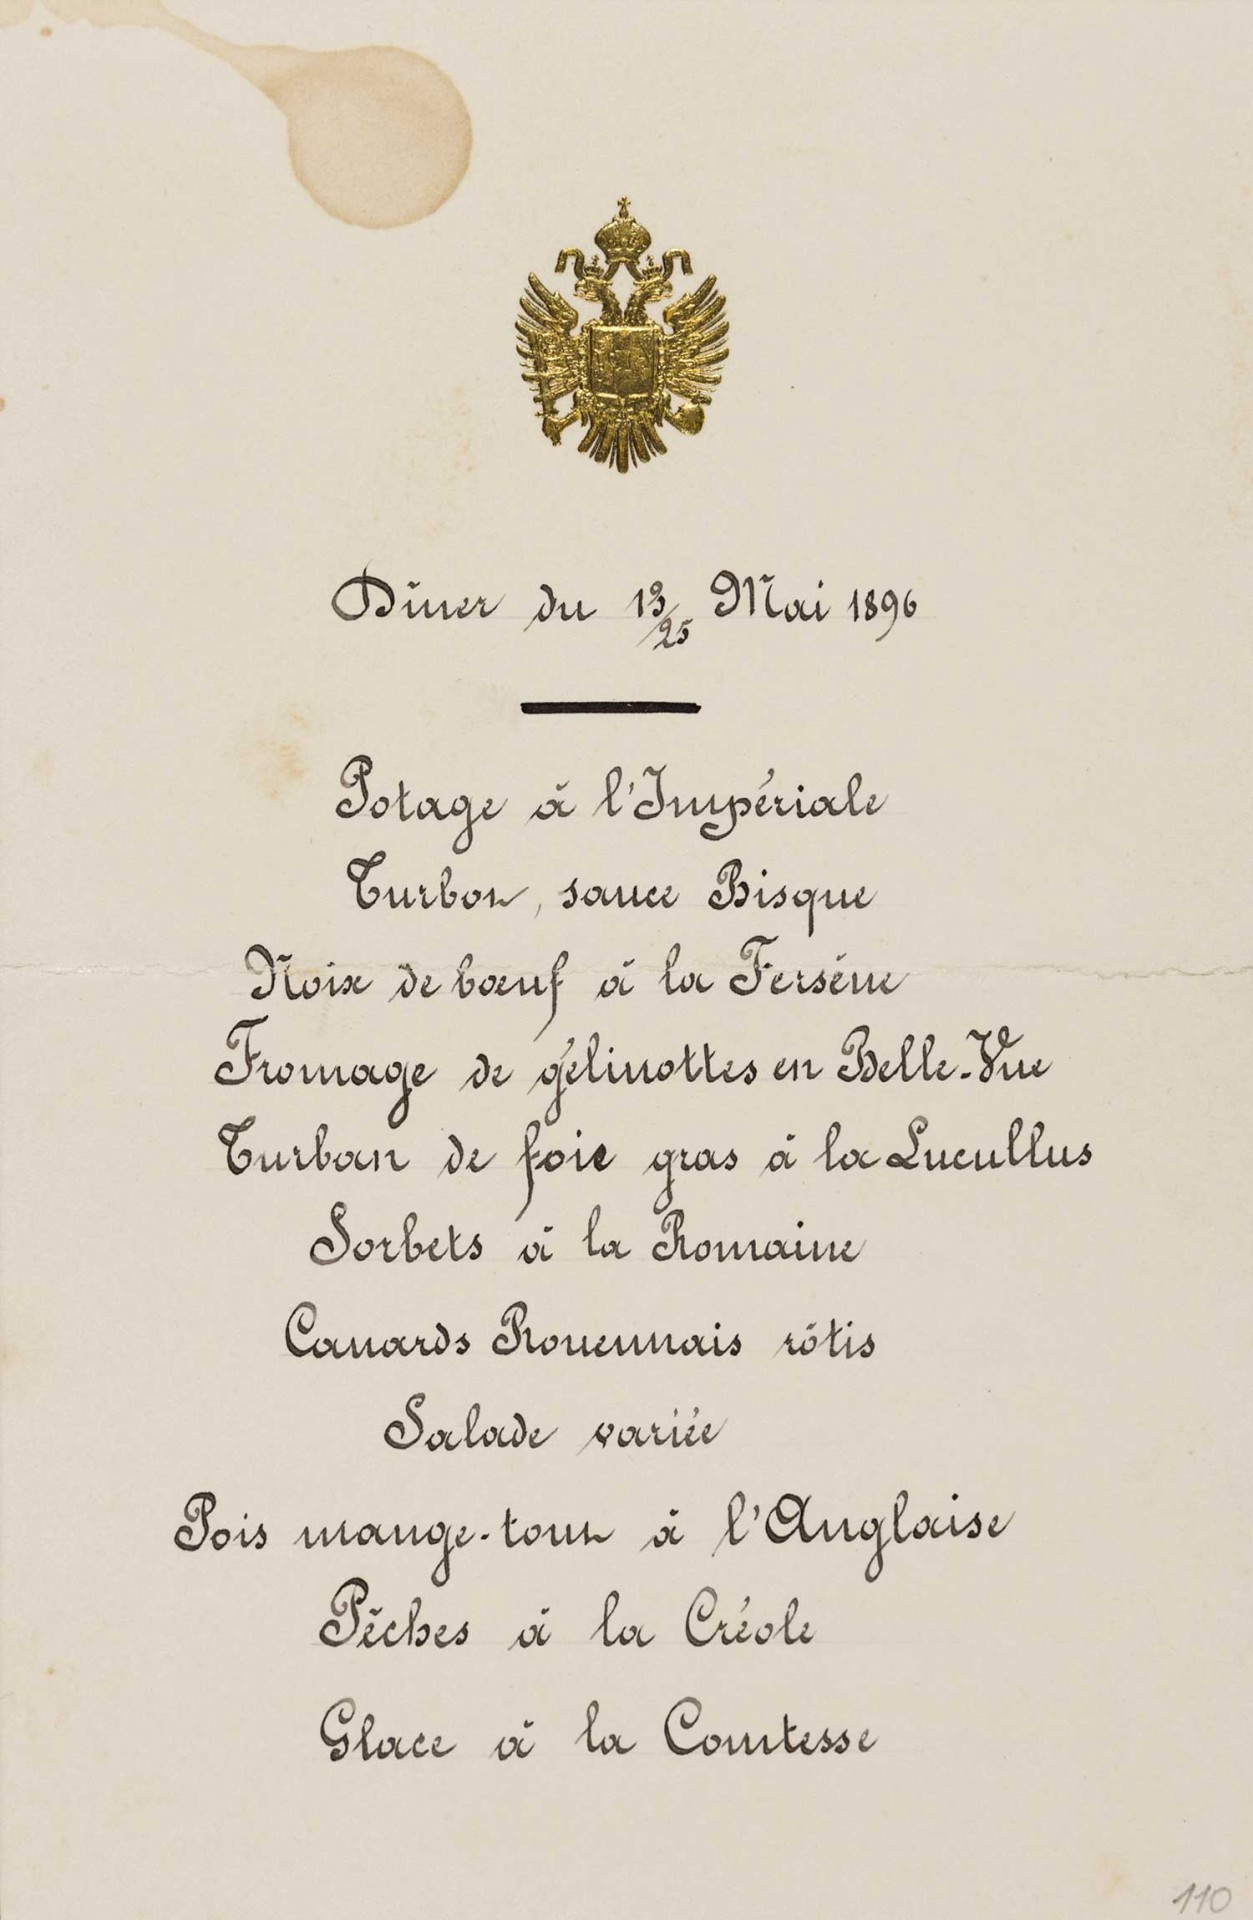 Dîner du 13/25 Mai 1896
Potage à l'Impériale
Turbot, sauce Bisque
Noix de bœuf à la Fersène
Fromage de gélinottes en Belle-Vue
Turban de foie gras à la Lucullus
Sorbets à la Romaine
Canards Rouennais rôtis
Salade variée
Pois mange-tout à l'Anglaise
Pêches à la Créole
Glace à la Comtesse
110